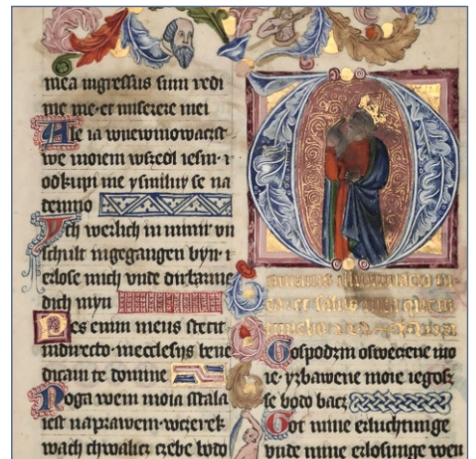 mea ingressus sum redi
me me· et miserere mei
Ale ia wnewinowacst
we moiem wszedl iesm· i
odkupi me ysmiluy se na
demno
Ych weilich in minir vn
schult ingegangen byn· i
erlose mich vnde dirbarme
dich myn
Pes enim meus stetit
indirecto· inecclesiis bene
dicam te domine
Noga wem moia stala
iest naprawem· wczerek
wach chwalicz czebe bodo
et salus mea quem
Gospodzin oswecene mo
ie· yzbawene moie iegosz
se bodo bacz
Got mine erluchtunge
vnde mine erlosunge wen